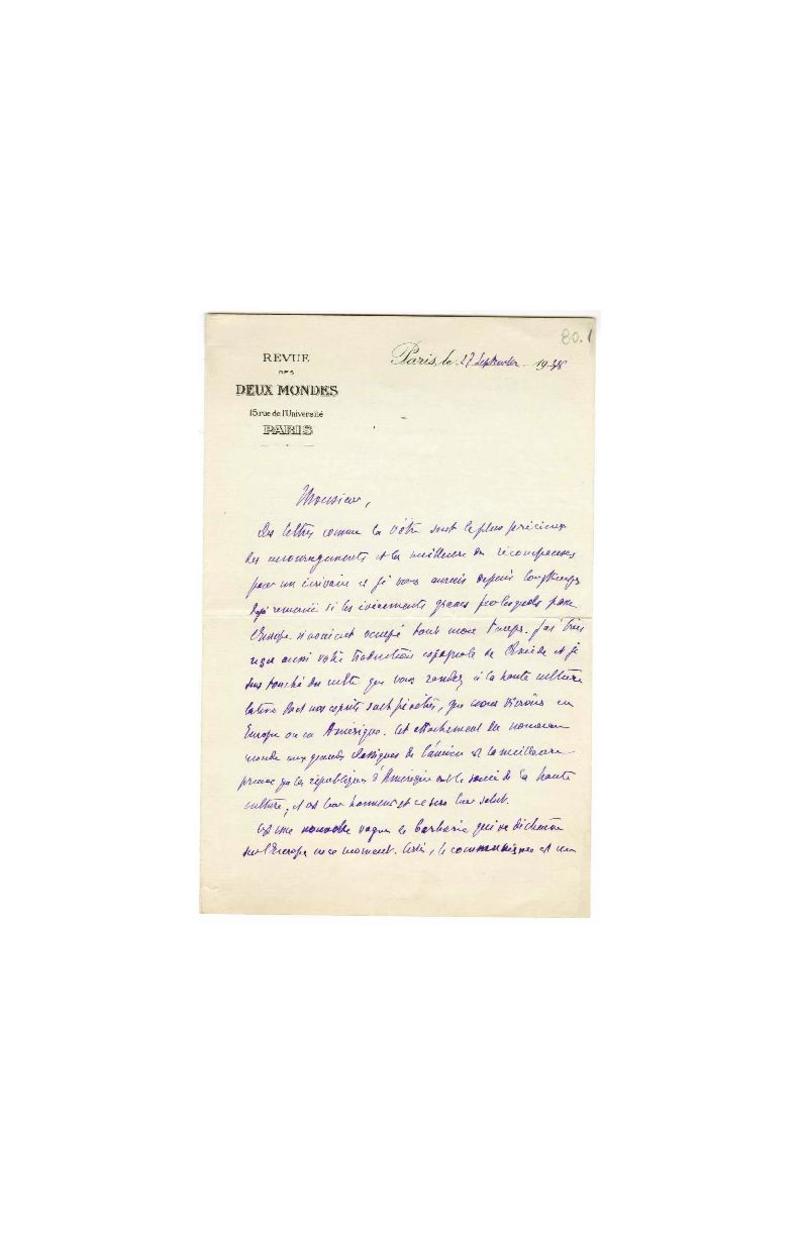 80.1
REVUE
DES
DEUX MONDES
15 rue de l'Université
PARIS
Paris, le 27 Septembre 1938
Monsieur,
Des lettres comme la vôtre sont le plus précieux
des encouragements et la meilleure des récompenses
pour un écrivain et je vous aurais depuis longtemps
déjà remercié si les événements graves par lesquels passe
l'Europe n'avaient occupé tout mon temps. J'ai bien
reçu aussi votre traduction espagnole de et je
suis touché du culte que vous rendez à la haute culture
latine dont nos esprits sont pénétrés, que nous vivions en
Europe ou en Amérique. Cet attachement du nouveau
monde aux grands classiques de l'ancien est la meilleure
preuve que les républiques d'Amérique ont le souci de la haute
culture, c'est leur honneur et ce sera leur salut.
C'est une nouvelle vague de barbarie qui se déchaîne
sur l'Europe en ce moment. Certes, le communisme est un